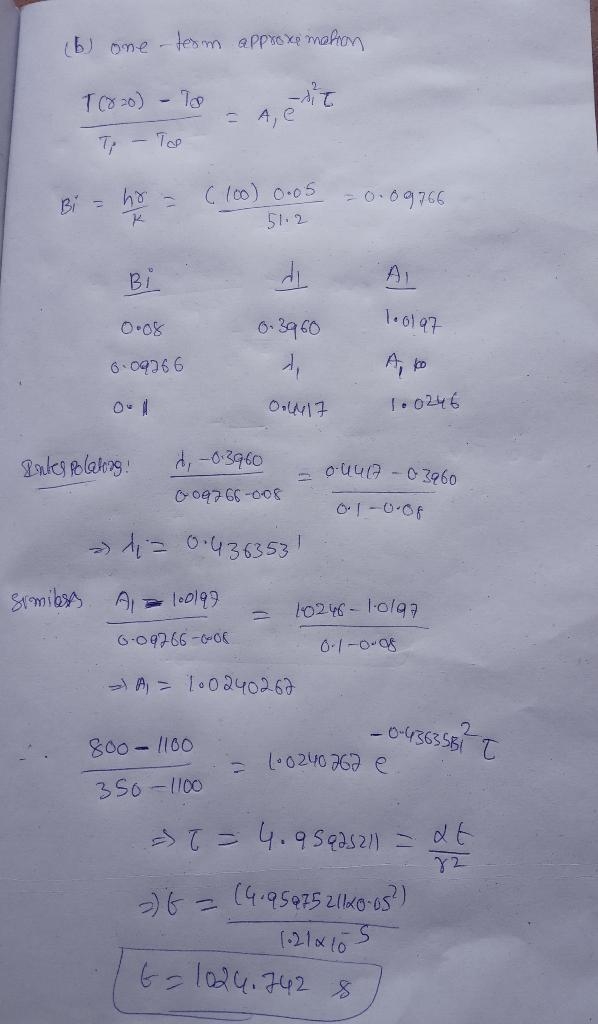 (b) one-term approximation
T(r=0) - T∞ / Ti - T∞ = A, e^-λ1²τ
Bi = hr/k = (100) 0.05 / 51.2 = 0.09766
Bi λ1 A1
0.08 0.3960 1.0197
0.09766 λ1 A1
0.1 0.4417 1.0246
Interpolating: λ1 - 0.3960 / 0.09766-0.08 = 0.4417 - 0.3960 / 0.1-0.08
⇒ λ1 = 0.4363531
A1 - 1.0197 / 0.09766-0.08 = 1.0246 - 1.0197 / 0.1-0.08
⇒ A1 = 1.0240267
∴ 800 - 1100 / 350 - 1100 = 1.0240267 e^-0.4363531² τ
⇒ τ = 4.95975211 = αt / r2
⇒ t = (4.95975211x0.05²) / 1.21x10^-5
t = 1024.742 s